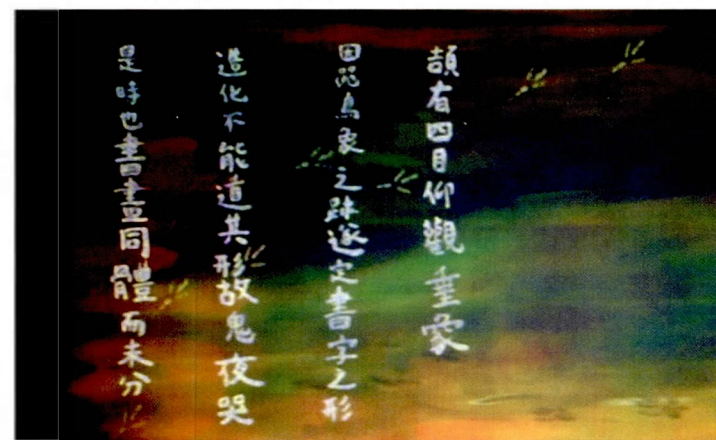 頡有四目仰觀垂象
因鳥象之跡遂定書字之形
造化不能道其形故鬼夜哭
是時也書畫同體而未分